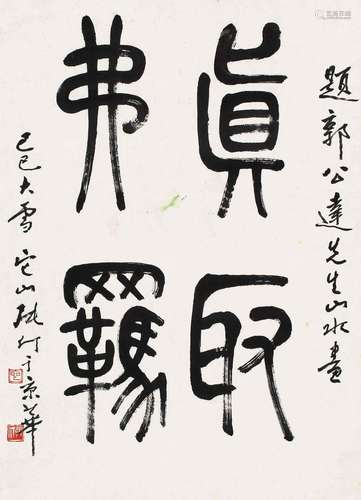 題郭公達先生山水畫
眞取
弗羈
己巳大雪它山張仃于京華